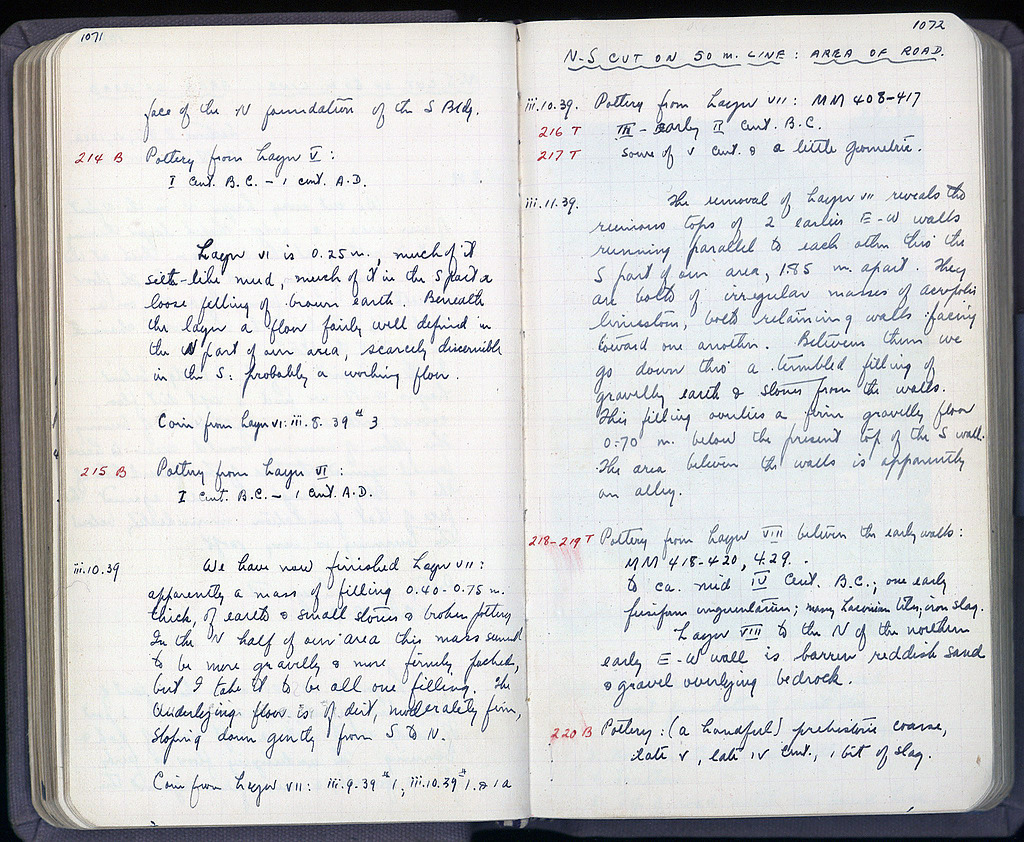 1071
face of the N foundation of the S Bldg.
214 B Pottery from Layer V :
I Cent. B.C. – I cent. A.D.
Layer VI is 0.25 m., much of it
silt-like mud, much of it in the S part a
loose filling of brown earth. Beneath
the layer a floor fairly well defined in
the N part of our area, scarcely discernible
in the S: probably a working floor.
Coin from Layer VI: iii.8.39 # 3
215 B Pottery from Layer VI :
I Cent. B.C. – I Cent. A.D.
iii.10.39 We have now finished Layer VII :
apparently a mass of filling 0.40-0.75 m.
thick, of earth & small stones & broken pottery
In the N half of our area this mass seemed
to be more gravelly & more firmly packed,
but I take it to be all one filling. The
underlying floor is of dirt, moderately firm,
sloping down gently from S to N.
Coin from Layer VII: iii.9.39 # 1, iii.10.39 # 1 & 1a
1072
N-S CUT ON 50 m. LINE : AREA OF ROAD.
iii.10.39. Pottery from Layer VII : MM 408-417
216 T III - Early II Cent. B.C.
217 T some of V Cent. & a little Geometric.
iii.11.39. The removal of Layer VII reveals the
ruinous tops of 2 earlier E-W walls
running parallel to each other thro the
S part of our area, 1.85 m. apart. They
are both of irregular masses of acropolis
limestone, both retaining walls facing
toward one another. Between them we
go down thro' a tumbled filling of
gravelly earth & stones from the walls.
This filling overlies a firm gravelly floor
0.70 m. below the present top of the S wall.
The area between the walls is apparently
an alley.
218-219 T Pottery from Layer VIII between the early walls :
MM 418-420, 429.
to ca. mid IV Cent. B.C.; one early
fusiform unguentarium; many Laconian tiles; iron slag.
Layer VIII to the N of the northern
early E-W wall is barren reddish sand
& gravel overlying bedrock.
220 B Pottery : (a handful) prehistoric coarse,
late V, late IV Cent., 1 bit of slag.